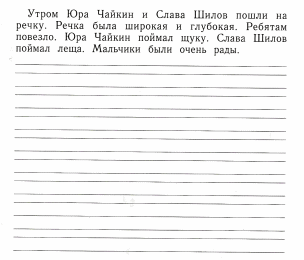 Утром Юра Чайкин и Слава Шилов пошли на
речку. Речка была широкая и глубокая. Ребятам
повезло. Юра Чайкин поймал щуку. Слава Шилов
поймал леща. Мальчики были очень рады.